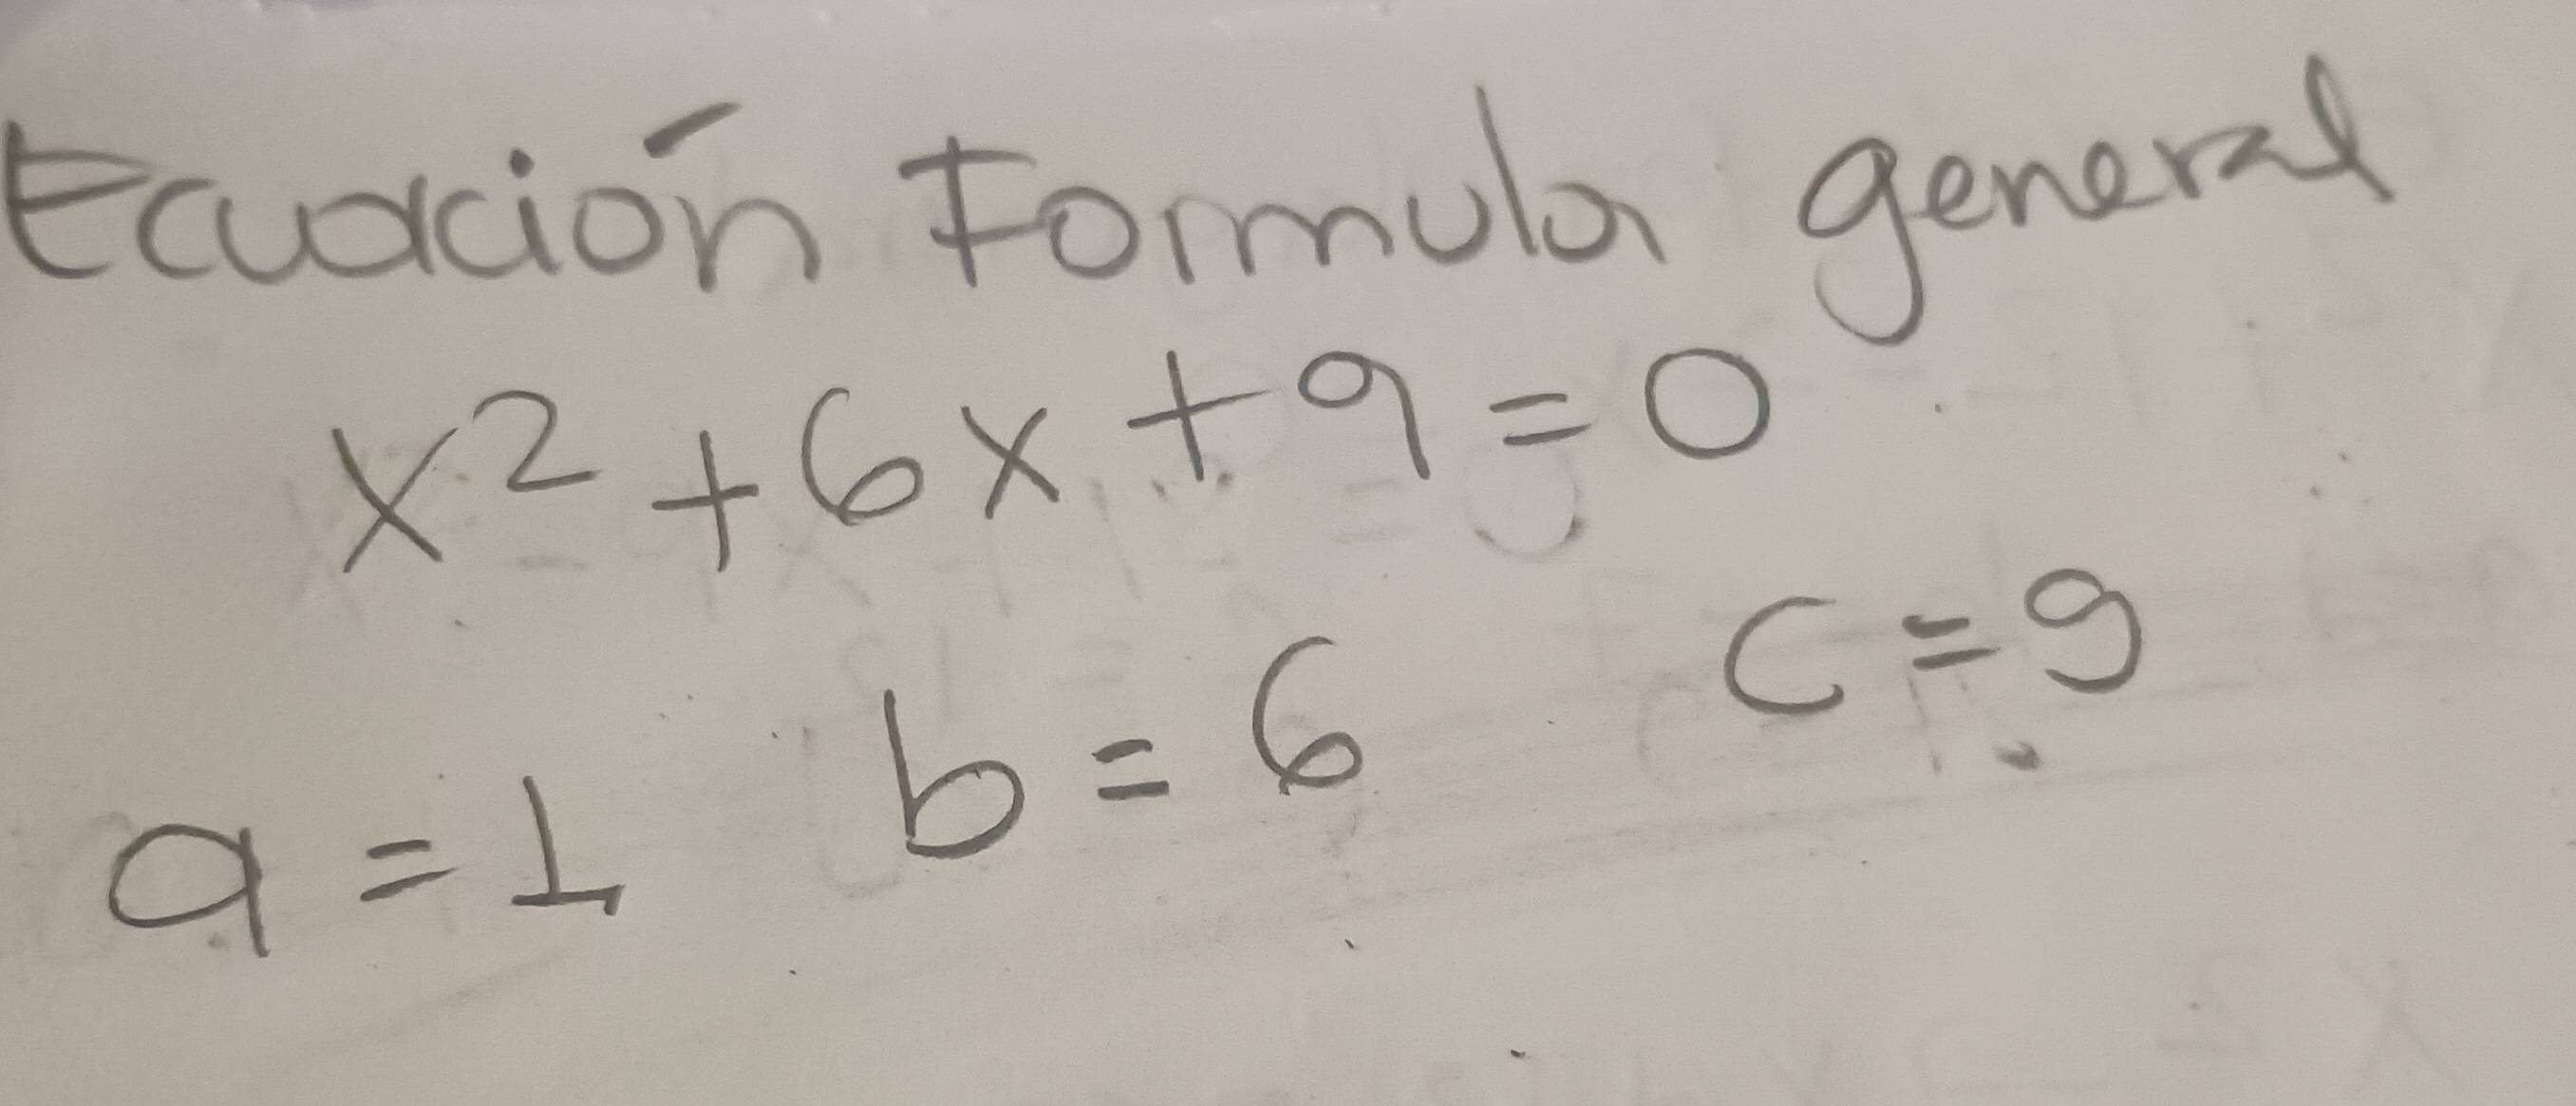 Ecuación Formula general
x² + 6x + 9 = 0
a = 1 b = 6 c = 9